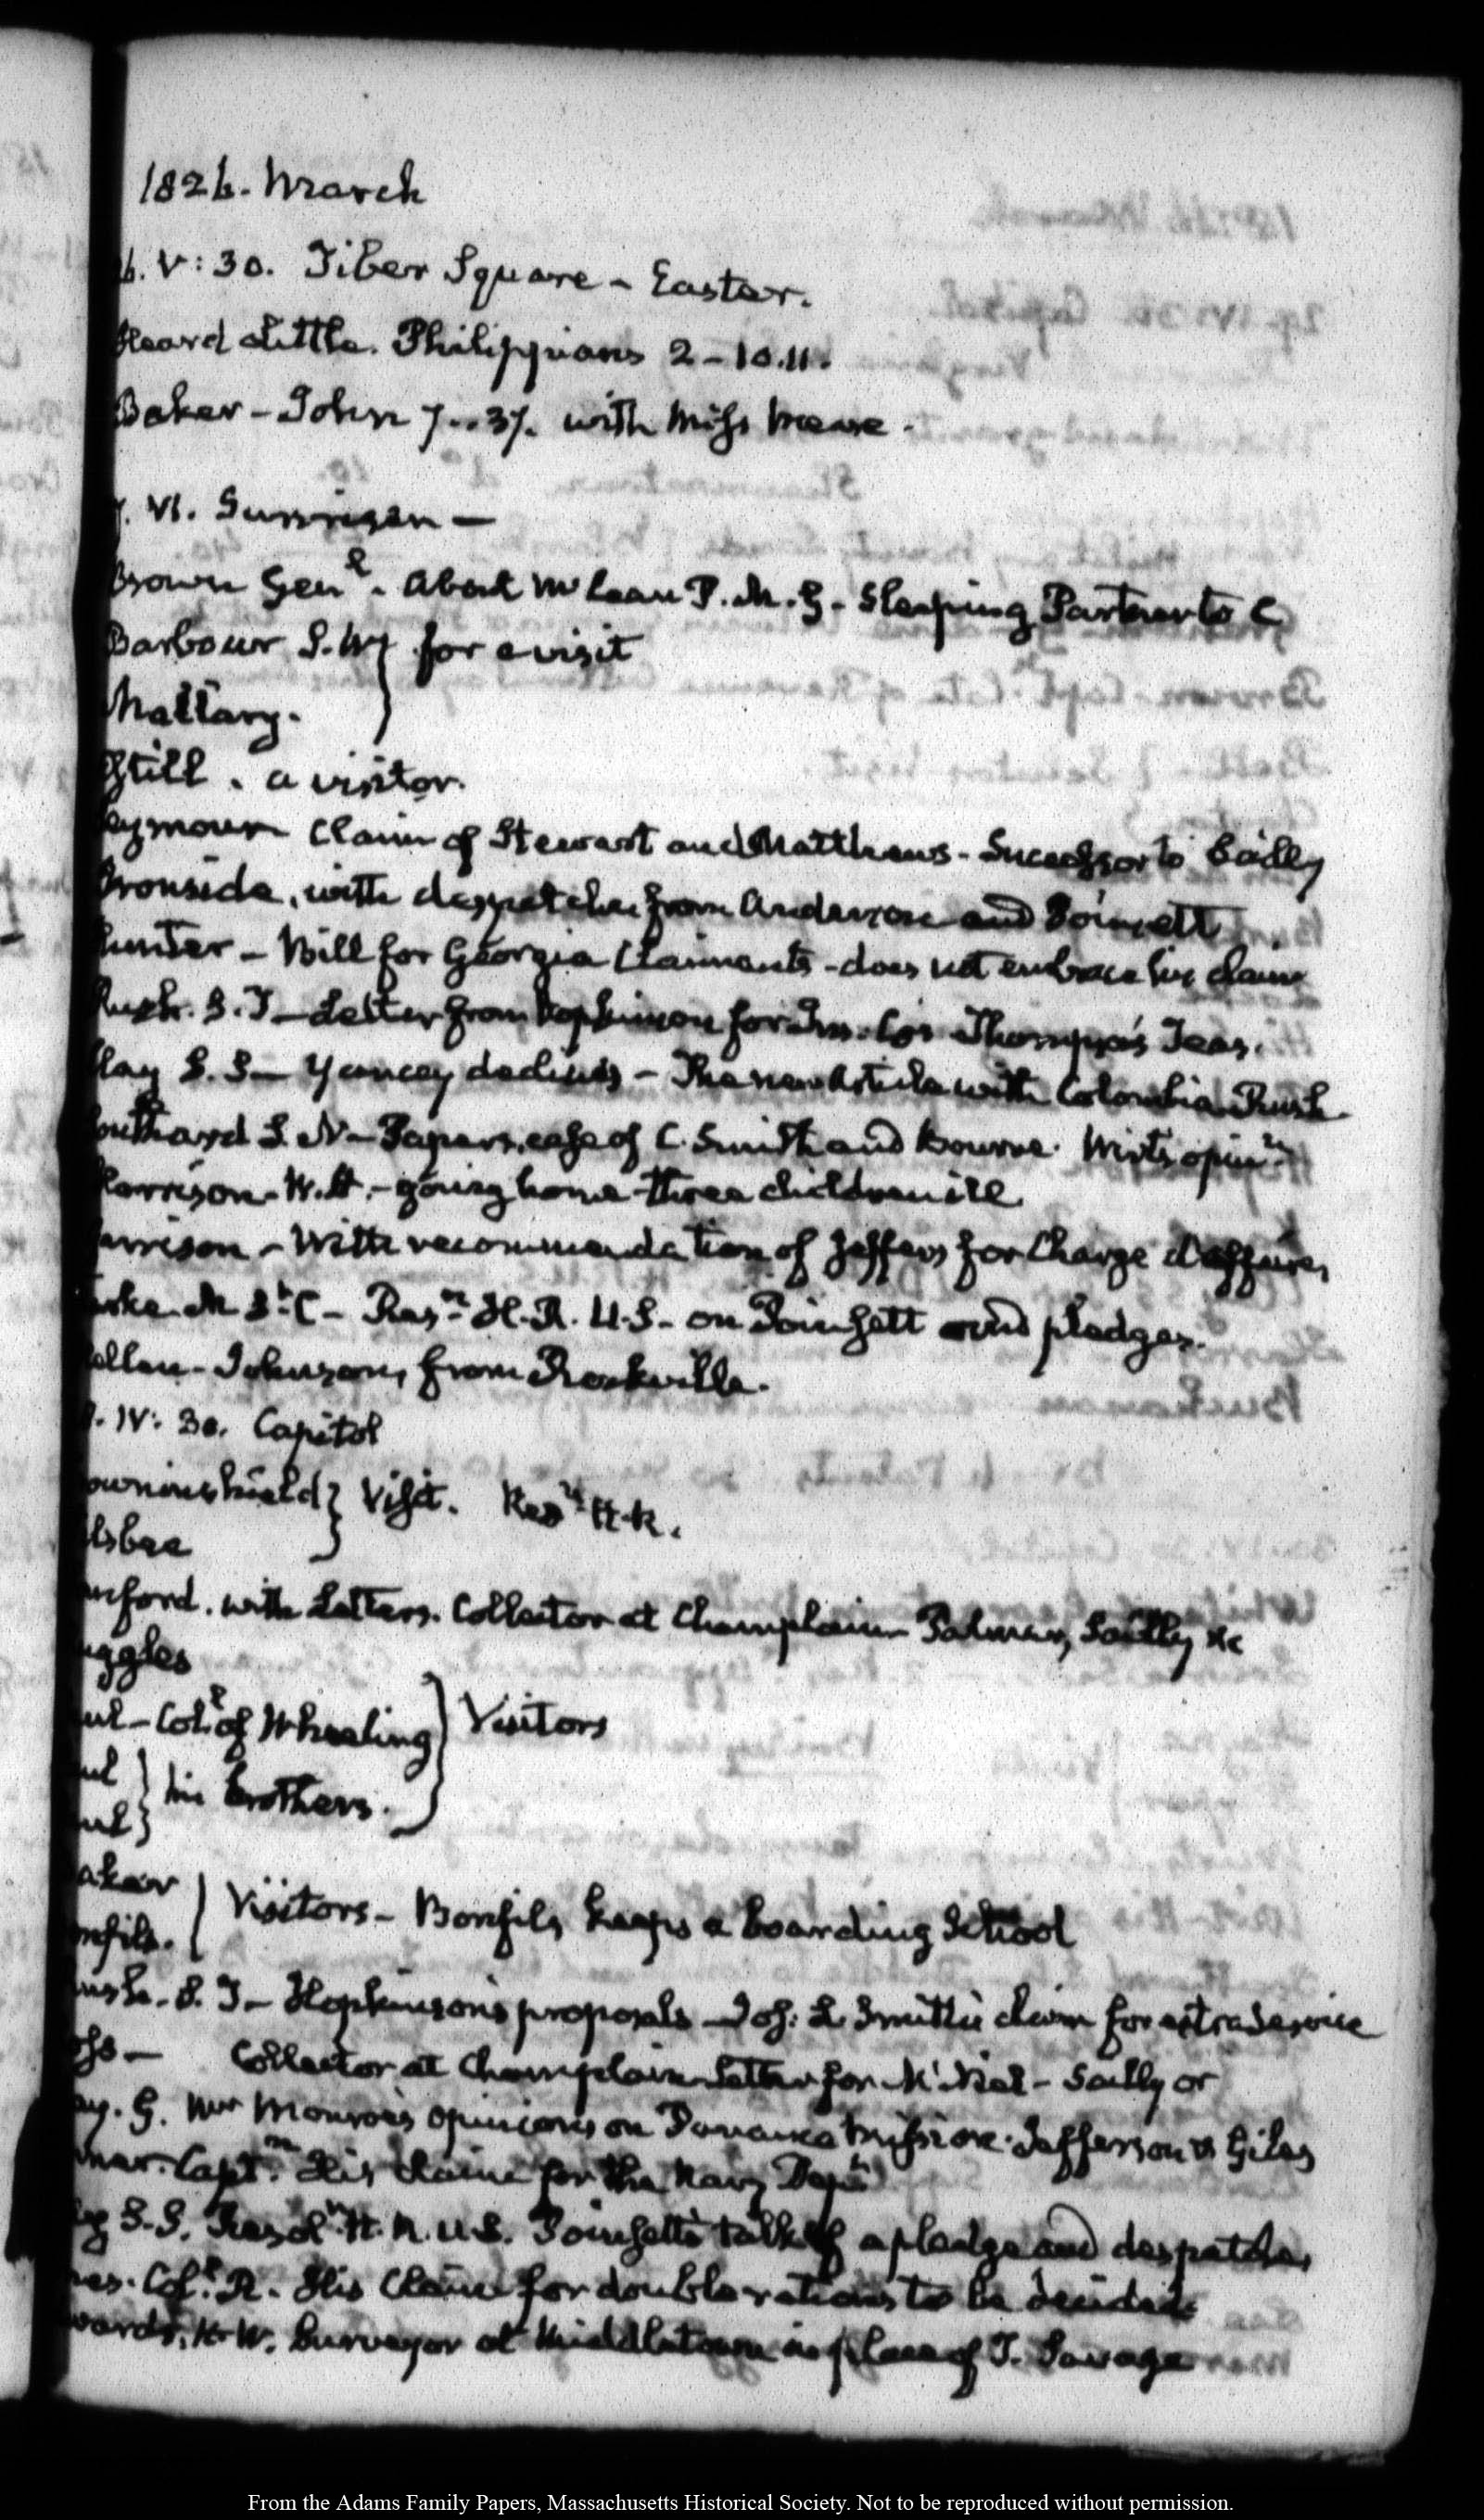 1826. March
6. V: 30. Tiber Square - Easter.
Heard Little. Philippians 2 - 10.11.
Baker - John 7..37. with Miss Mease.
7. VI. Sunrisen —
Brown Genl. About McLean P.M.G. Sleeping Partner to C
Barbour S.W. } for a visit
Mallary. }
Still. a visitor.
eymour Claim of Stewart and Matthews - Successor to Bailly
Ironside, with despatches from Anderson and Poinsett
Hunter - Bill for Georgia Claimants - does not embrace his claim
Rush. S.T. — Letter from Hopkinson for Ins. Cos Thompson's Teas.
Clay S.S. — Yancey declines - The new Article with Colombia Rush
outhard S.N - Papers, case of C. Smith and Bourne. Wirt's opinn.
Harrison. W.H. - going home - three children ill
arrison - With recommendation of Jeffers for Charge d'affaires
M St. C - Resn. H.R. U.S. on Poinsett and pledges.
ellan - Johnson, from Rockville.
8. IV: 30. Capitol
owninshield } Visit. Resn H.R.
lsbee }
anford. with Letters. Collector at Champlain - Palmer, Sailly &c
uggles
ul - Coll. of Wheeling } Visitors
ul } his brothers.
ul }
aker } Visitors - Bonfils keeps a boarding School
nfils. }
ush. S.T. - Hopkinson's proposals - Jos: L. Smith's claim for extra service
oss — Collector at Champlain Letter for McNeil - Sailly or
ay. G. Mr Monroe's opinions on Panama Mission. Jefferson & Giles
Captn. His Claim for the Navy Dept
ay S.S. Resoln H.R. U.S. Poinsett's talk of a pledge and despatches
Coll. R. His Claim for double rations to be decided
wards, H.W. Surveyor at Middletown in place of T. Savage
From the Adams Family Papers, Massachusetts Historical Society. Not to be reproduced without permission.